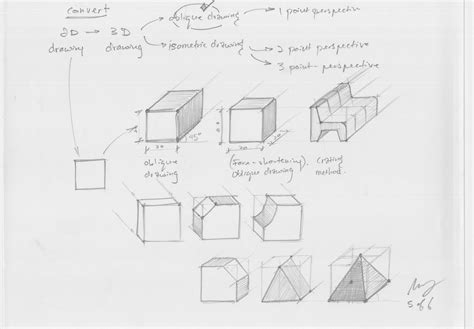 convert
2D → 3D
drawing drawing
oblique drawing → 1 point perspective
isometric drawing → 2 point perspective
3 point perspective
45°
oblique
drawing
(Fore-shortening)
oblique drawing
Crating
method.
5 of 6